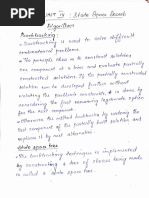 UNIT IV : State Space Search
Algorithms
Backtracking :
* Backtracking is used to solve difficult
combinatorial problems.
* The principle idea is to construct solutions
one component at a time and evaluate partially
constructed solutions. If the partially constructed
solution can be developed further without
violating the problem constraints, it is done
by considering the first remaining legitimate
option for next component.
* otherwise the method backtracks by
component of the partially solution and
it with next alternative
State space tree
* The backtracking technique is implemented
by constructing a tree of choices being made
is called a state space tree.